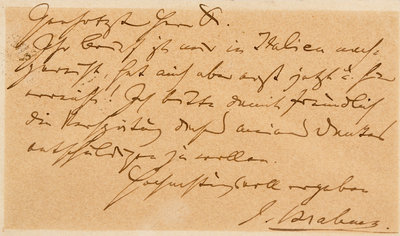 Geehrtester Herr D.
Ihr Brief ist mir in Italien nach-
gereist, hat mich aber erst jetzt u. hier
erreicht! Ich bitte damit freundlich
die Verspätung dieses meines Dankes
entschuldigen zu wollen.
Hochachtungsvoll ergeben
J. Brahms.